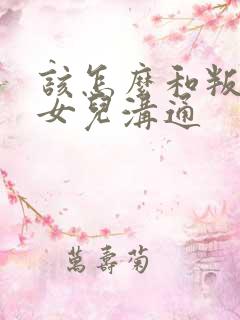 該怎麼和叛
女兒溝通
萬壽菊